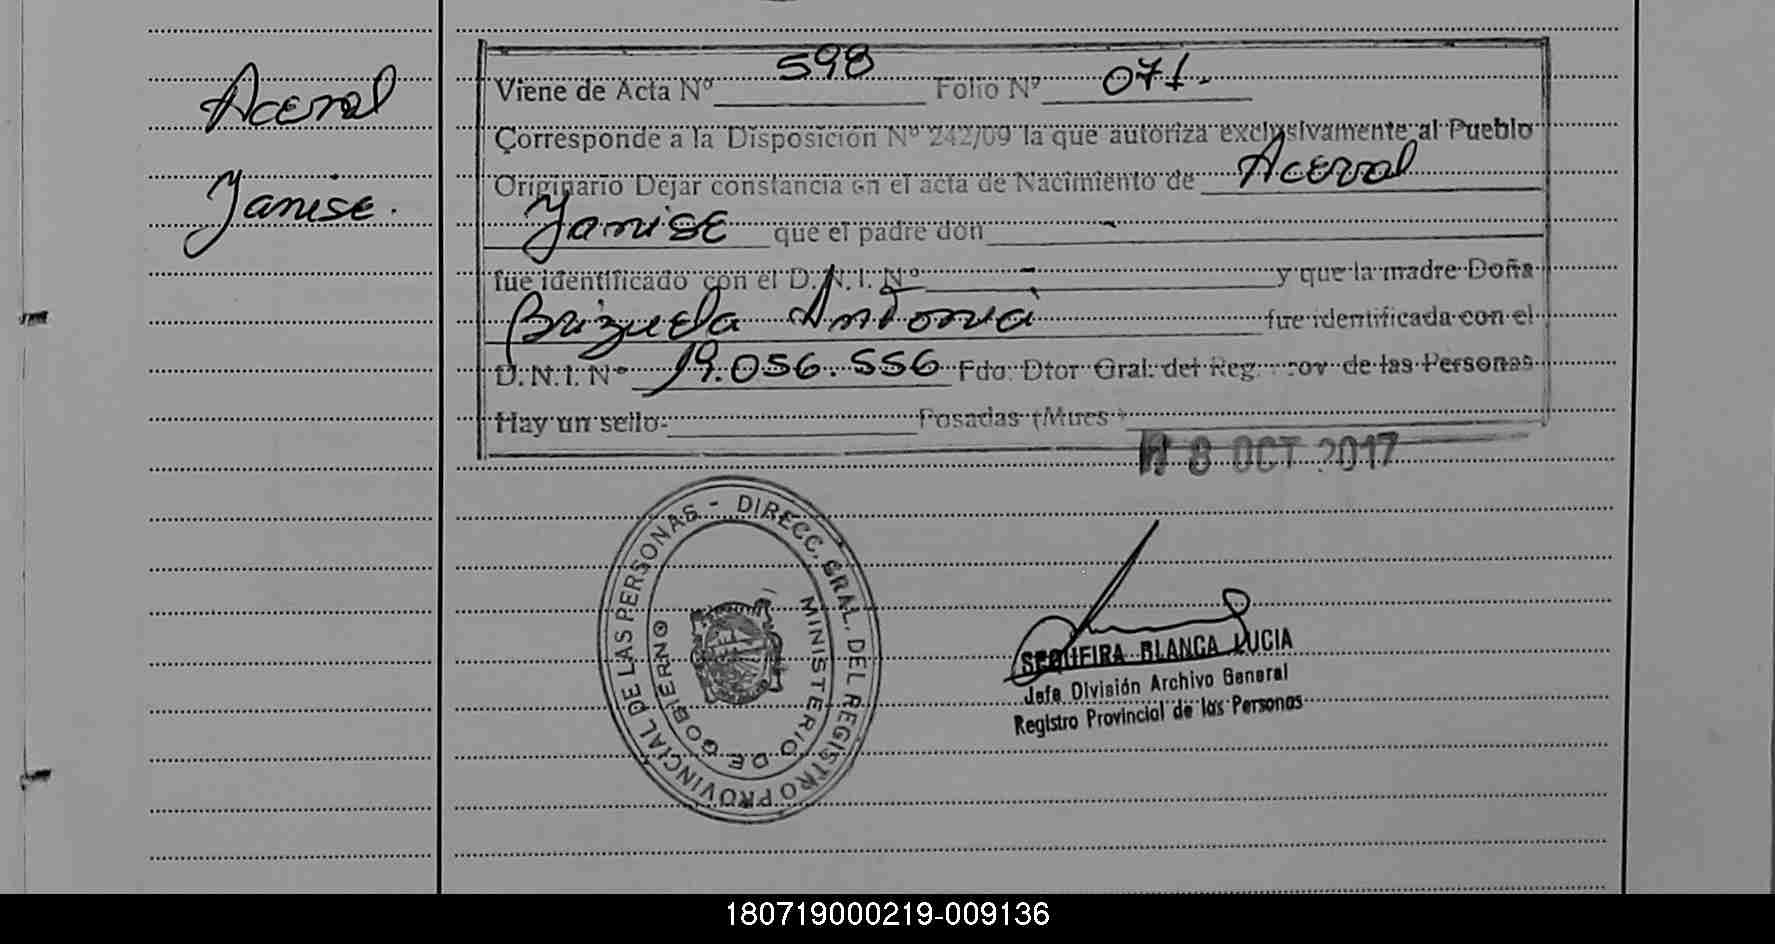 Aceval
Yanise.
Viene de Acta Nº 598 Folio Nº 071.-
Corresponde a la Disposición Nº 242/09 la que autoriza exclusivamente al Pueblo
Originario Dejar constancia en el acta de Nacimiento de Aceval
Yanise que el padre don -
fue identificado con el D. N. I. Nº - y que la madre Doña
Brizuela Antonia fue identificada con el
D. N. I. Nº 19.056.556 Fdo. Dtor Gral. del Reg. Prov de las Personas
Hay un sello. Posadas (Mnes)
8 OCT 2017
DIRECC. GRAL. DEL REGISTRO PROVINCIAL DE LAS PERSONAS -
MINISTERIO DE GOBIERNO
SEQUEIRA BLANCA LUCIA
Jefa División Archivo General
Registro Provincial de las Personas
180719000219-009136